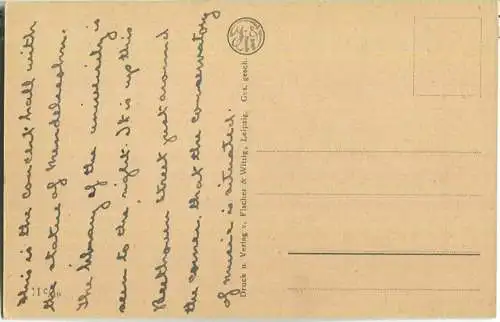 This is the concert hall with
the statue of Mendelssohn.
The library of the university is
seen to the right. It is up this
Beethoven street just around
the corner, that the conservatory
of music is situated.
Druck u. Verlag v. Fischer & Wittig, Leipzig. Ges. gesch.